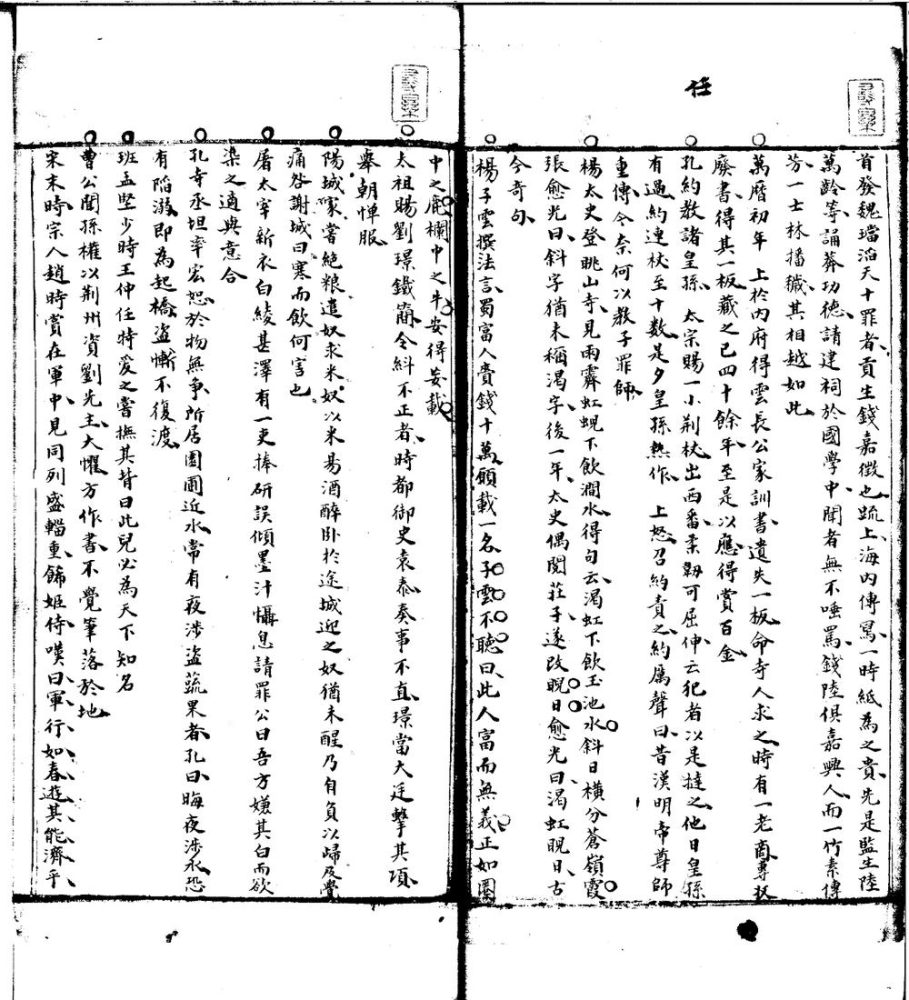 任
首發魏璫滔天十罪者貢生錢嘉徵也疏上海內傳寫一時紙為之貴先是監生陸
萬齡等誦莽功德請建祠於國學中聞者無不唾罵錢陸俱嘉興人而一竹素傳
芳一士林播穢其相越如此
萬曆初年上於內府得雲長公家訓書遺失一板命寺人求之時有一老商專扱
廢書得其一板藏之已四十餘年至是以應得賞百金
孔約教諸皇孫太宗賜一小荆杖出西番柔韌可屈伸云犯者以是撻之他日皇孫
有過約連杖至十數是夕皇孫熱作上怒召約責之約厲聲曰昔漢明帝尊師
重傳今奈何以教子罪師
楊太史登眺山寺見雨霽虹蜺下飲澗水得句云渴虹下飲玉池水斜日橫分蒼嶺霞
張愈光曰斜字猶未稱渴字後一年太史偶閱莊子遂改睨日愈光曰渴虹睨日古
今奇句
楊子雲撰法言蜀富人賫錢十萬願載一名子雲不聽曰此人富而無義正如圈
中之鹿欄中之牛安得妄載
太祖賜劉璟鐵簡令糾不正者時都御史袁泰奏事不直璟當大廷擊其項
舉朝憚服
陽城家嘗絕粮遣奴求米奴以米易酒醉卧於途城迎之奴猶未醒乃自負以歸及覺
痛咎謝城曰寒而飲何害也
屠太宰新衣白綾甚澤有一吏捧研誤傾墨汁懾息請罪公曰吾方嫌其白而欲
染之適與意合
孔寺丞坦率宏恕於物無爭所居園圃近水常有夜涉盜蔬果者孔曰晦夜涉水恐
有陷溺即為起橋盜慚不復渡
班孟堅少時王仲任特爱之嘗撫其背曰此兒必為天下知名
曹公聞孫權以荆州資劉先主大懼方作書不覺筆落於地
宋末時宗人趙時賞在軍中見同列盛輜重飾姬侍嘆曰軍行如春遊其能濟乎